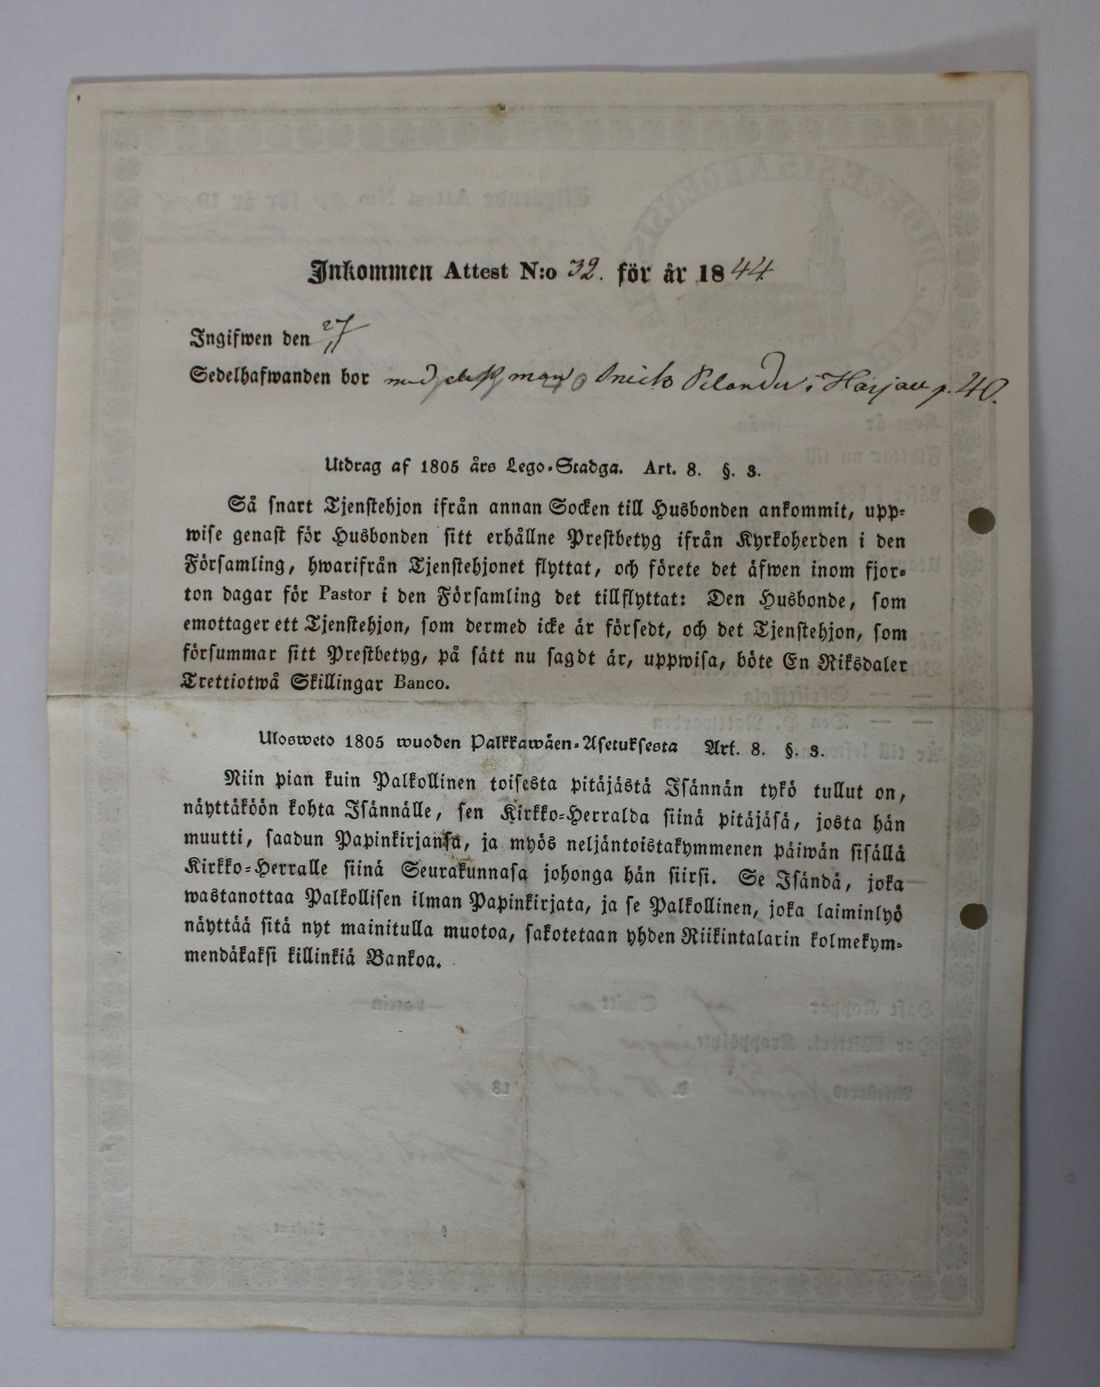 Inkommen Attest N:o 32. för år 1844
Ingifwen den 27/11
Sedelhafwanden bor med dess man p. 40.
Utdrag af 1805 års Lego-Stadga. Art. 8. §. 3.
Så snart Tjenstehjon ifrån annan Socken till Husbonden ankommit, upp-
wise genast för Husbonden sitt erhållne Prestbetyg ifrån Kyrkoherden i den
Församling, hwarifrån Tjenstehjonet flyttat, och förete det äfwen inom fjor-
ton dagar för Pastor i den Församling det tillflyttat: Den Husbonde, som
emottager ett Tjenstehjon, som dermed icke är försedt, och det Tjenstehjon, som
försummar sitt Prestbetyg, på sätt nu sagdt är, uppwisa, böte En Riksdaler
Trettiotwå Skillingar Banco.
Ulosweto 1805 wuoden Palkkawäen-Asetuksesta Art. 8. §. 3.
Niin pian kuin Palkollinen toisesta pitäjästä Isännän tykö tullut on,
näyttäköön kohta Isännälle, sen Kirkko-Herralda siinä pitäjäsä, josta hän
muutti, saadun Papinkirjansa, ja myös neljäntoistakymmenen päiwän sisällä
Kirkko-Herralle siinä Seurakunnasa johonga hän siirsi. Se Isändä, joka
wastanottaa Palkollisen ilman Papinkirjata, ja se Palkollinen, joka laiminlyö
näyttää sitä nyt mainitulla muotoa, sakotetaan yhden Riikintalarin kolmekym-
mendäkaksi killinkiä Bankoa.